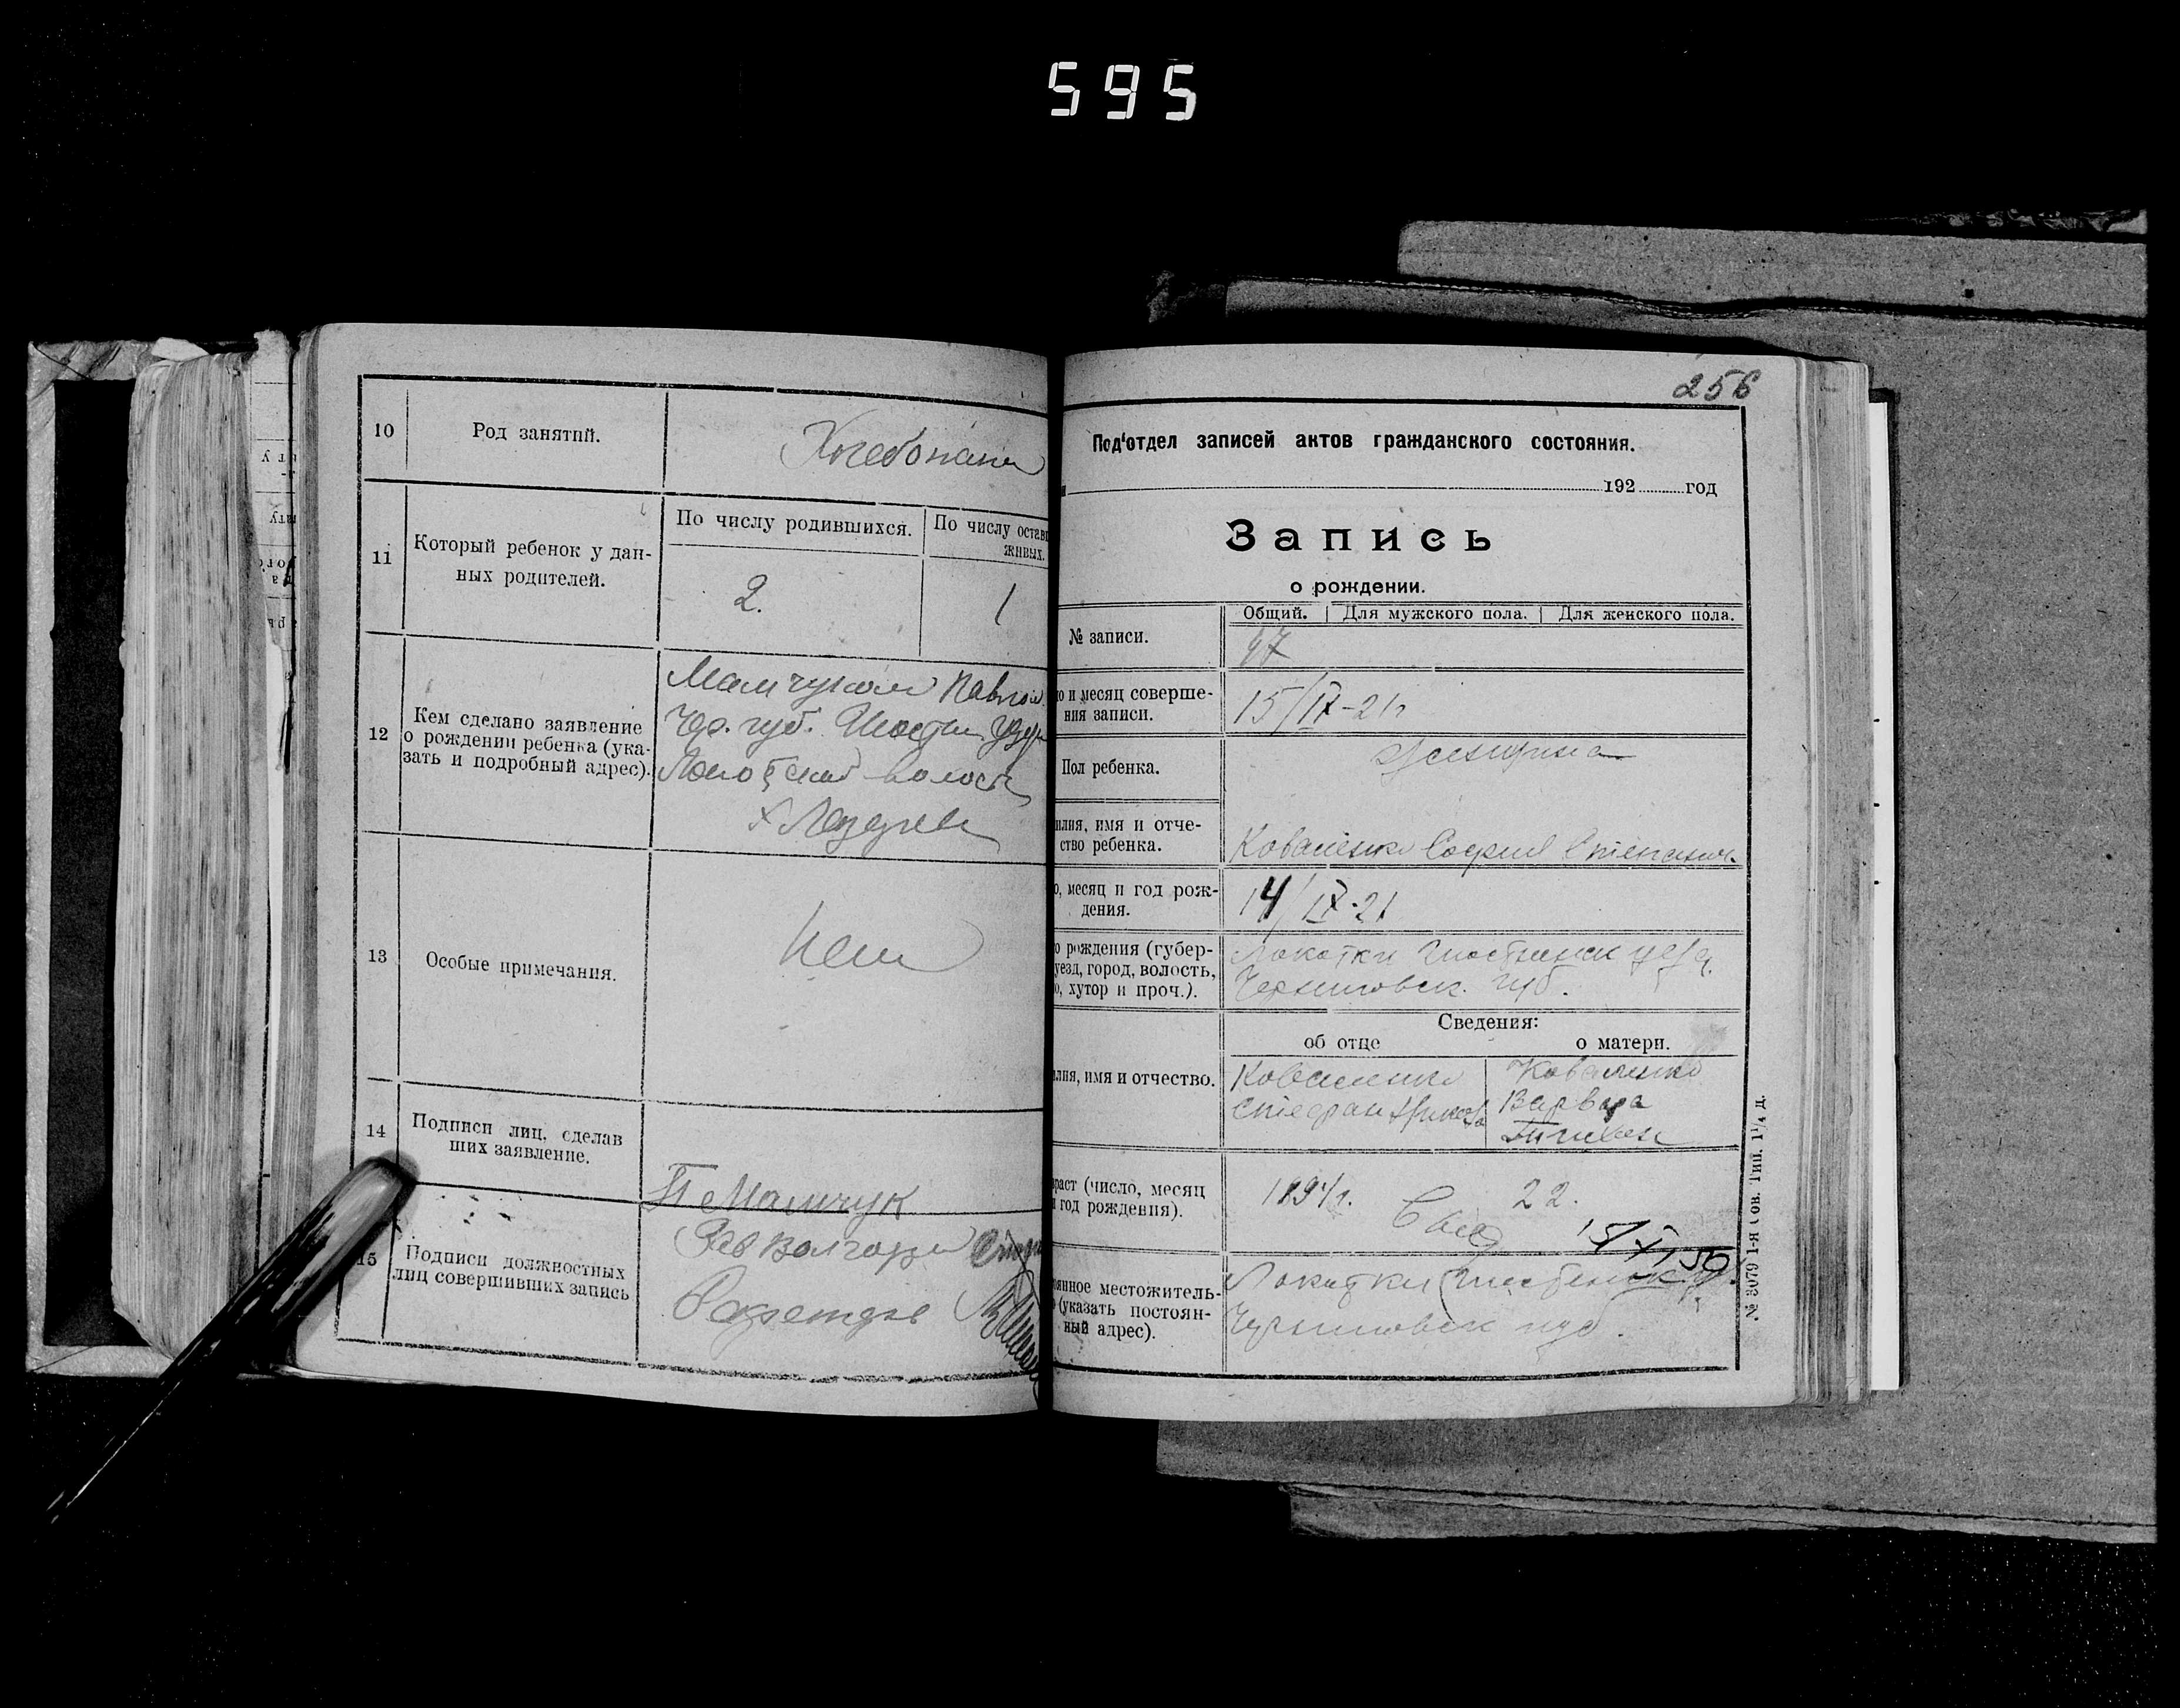 595
10
Род занятий.
11
Который ребенок у дан-
ных родителей.
По числу родившихся.
По числу остав
живых.
2.
1
12
Кем сделано заявление
о рождении ребенка (ука-
зать и подробный адрес).
Мамчуком Павлом
Чер. губ.
волости
13
Особые примечания.
Нет
14
Подписи лиц, сделав
ших заявление.
П Мамчук
15
Подписи должностных
лиц совершивших запись
256
Под'отдел записей актов гражданского состояния.
192 год
Запись
о рождении.
Общий.
Для мужского пола.
Для женского пола.
№ записи.
97
о и месяц соверше-
ния записи.
15/IX-21г
Пол ребенка.
женщина
илия, имя и отче-
ство ребенка.
Коваленко София Степанов.
о, месяц и год рож-
дения.
14/IX-21
о рождения (губер-
уезд, город, волость,
о, хутор и проч.).
Локотки Шостенск уезд.
Черниговск. губ.
Сведения:
об отце
о матери.
лия, имя и отчество.
Коваленко
Стефан
Коваленко
Варвара
раст (число, месяц
и год рождения).
22.
янное местожитель-
о (указать постоян-
ный адрес).
Локотки Шостенск у.
Черниговск губ.
№ 3079 1-я Сов. Тип. 1¹/₄ д.